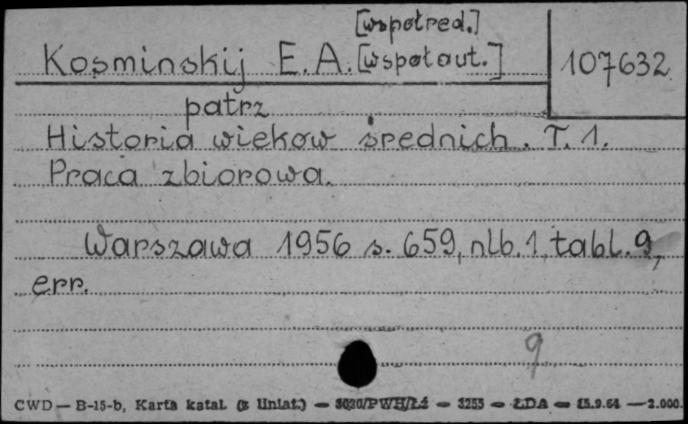 [współred.]
Kosminskij E. A. [współaut.] 107632
patrz
Historia wieków średnich. T. 1.
Praca zbiorowa.
Warszawa 1956 s. 659, nlb. 1, tabl. 9,
err.
9
CWD — B-15-b, Karta katal. (z liniat.) — 3030/PWH/Łź — 3255 — ŁDA — 15.9.64 — 2.000.